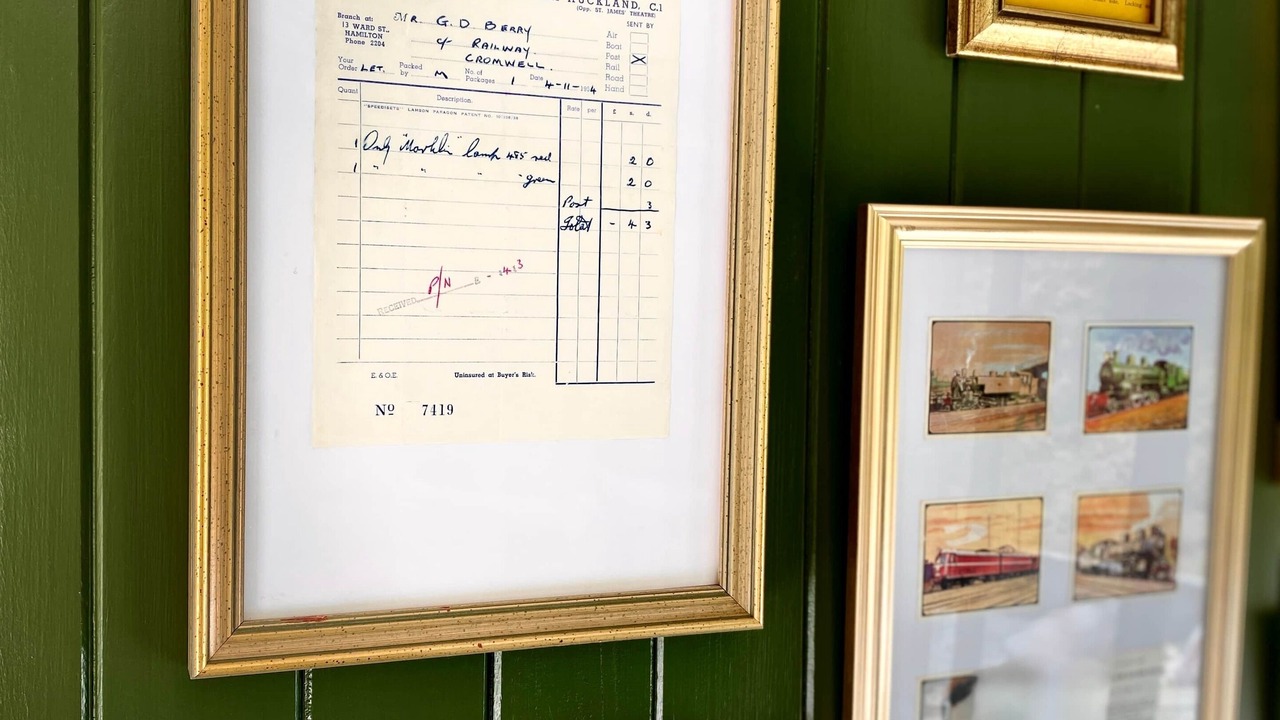 AUCKLAND. C.1
(Opp. ST. JAMES' THEATRE)
Branch at:
13 WARD ST.,
HAMILTON
Phone 2204
MR. G. D BERRY
RAILWAY.
CROMWELL.
SENT BY
Air
Boat
Post X
Rail
Road
Hand
Your Order LET. Packed by M No. of Packages 1 Date 4-11-1954
Quant Description. Rate per £ s. d.
"SPEEDISETS" LAMSON PARAGON PATENT NO.
1 Only "Marklin" lamp 485 red 2 0
1 " " " green 2 0
Post 3
Total - 4 3
P/N
RECEIVED £ - 4.3
E. & O.E. Uninsured at Buyer's Risk.
Nº 7419